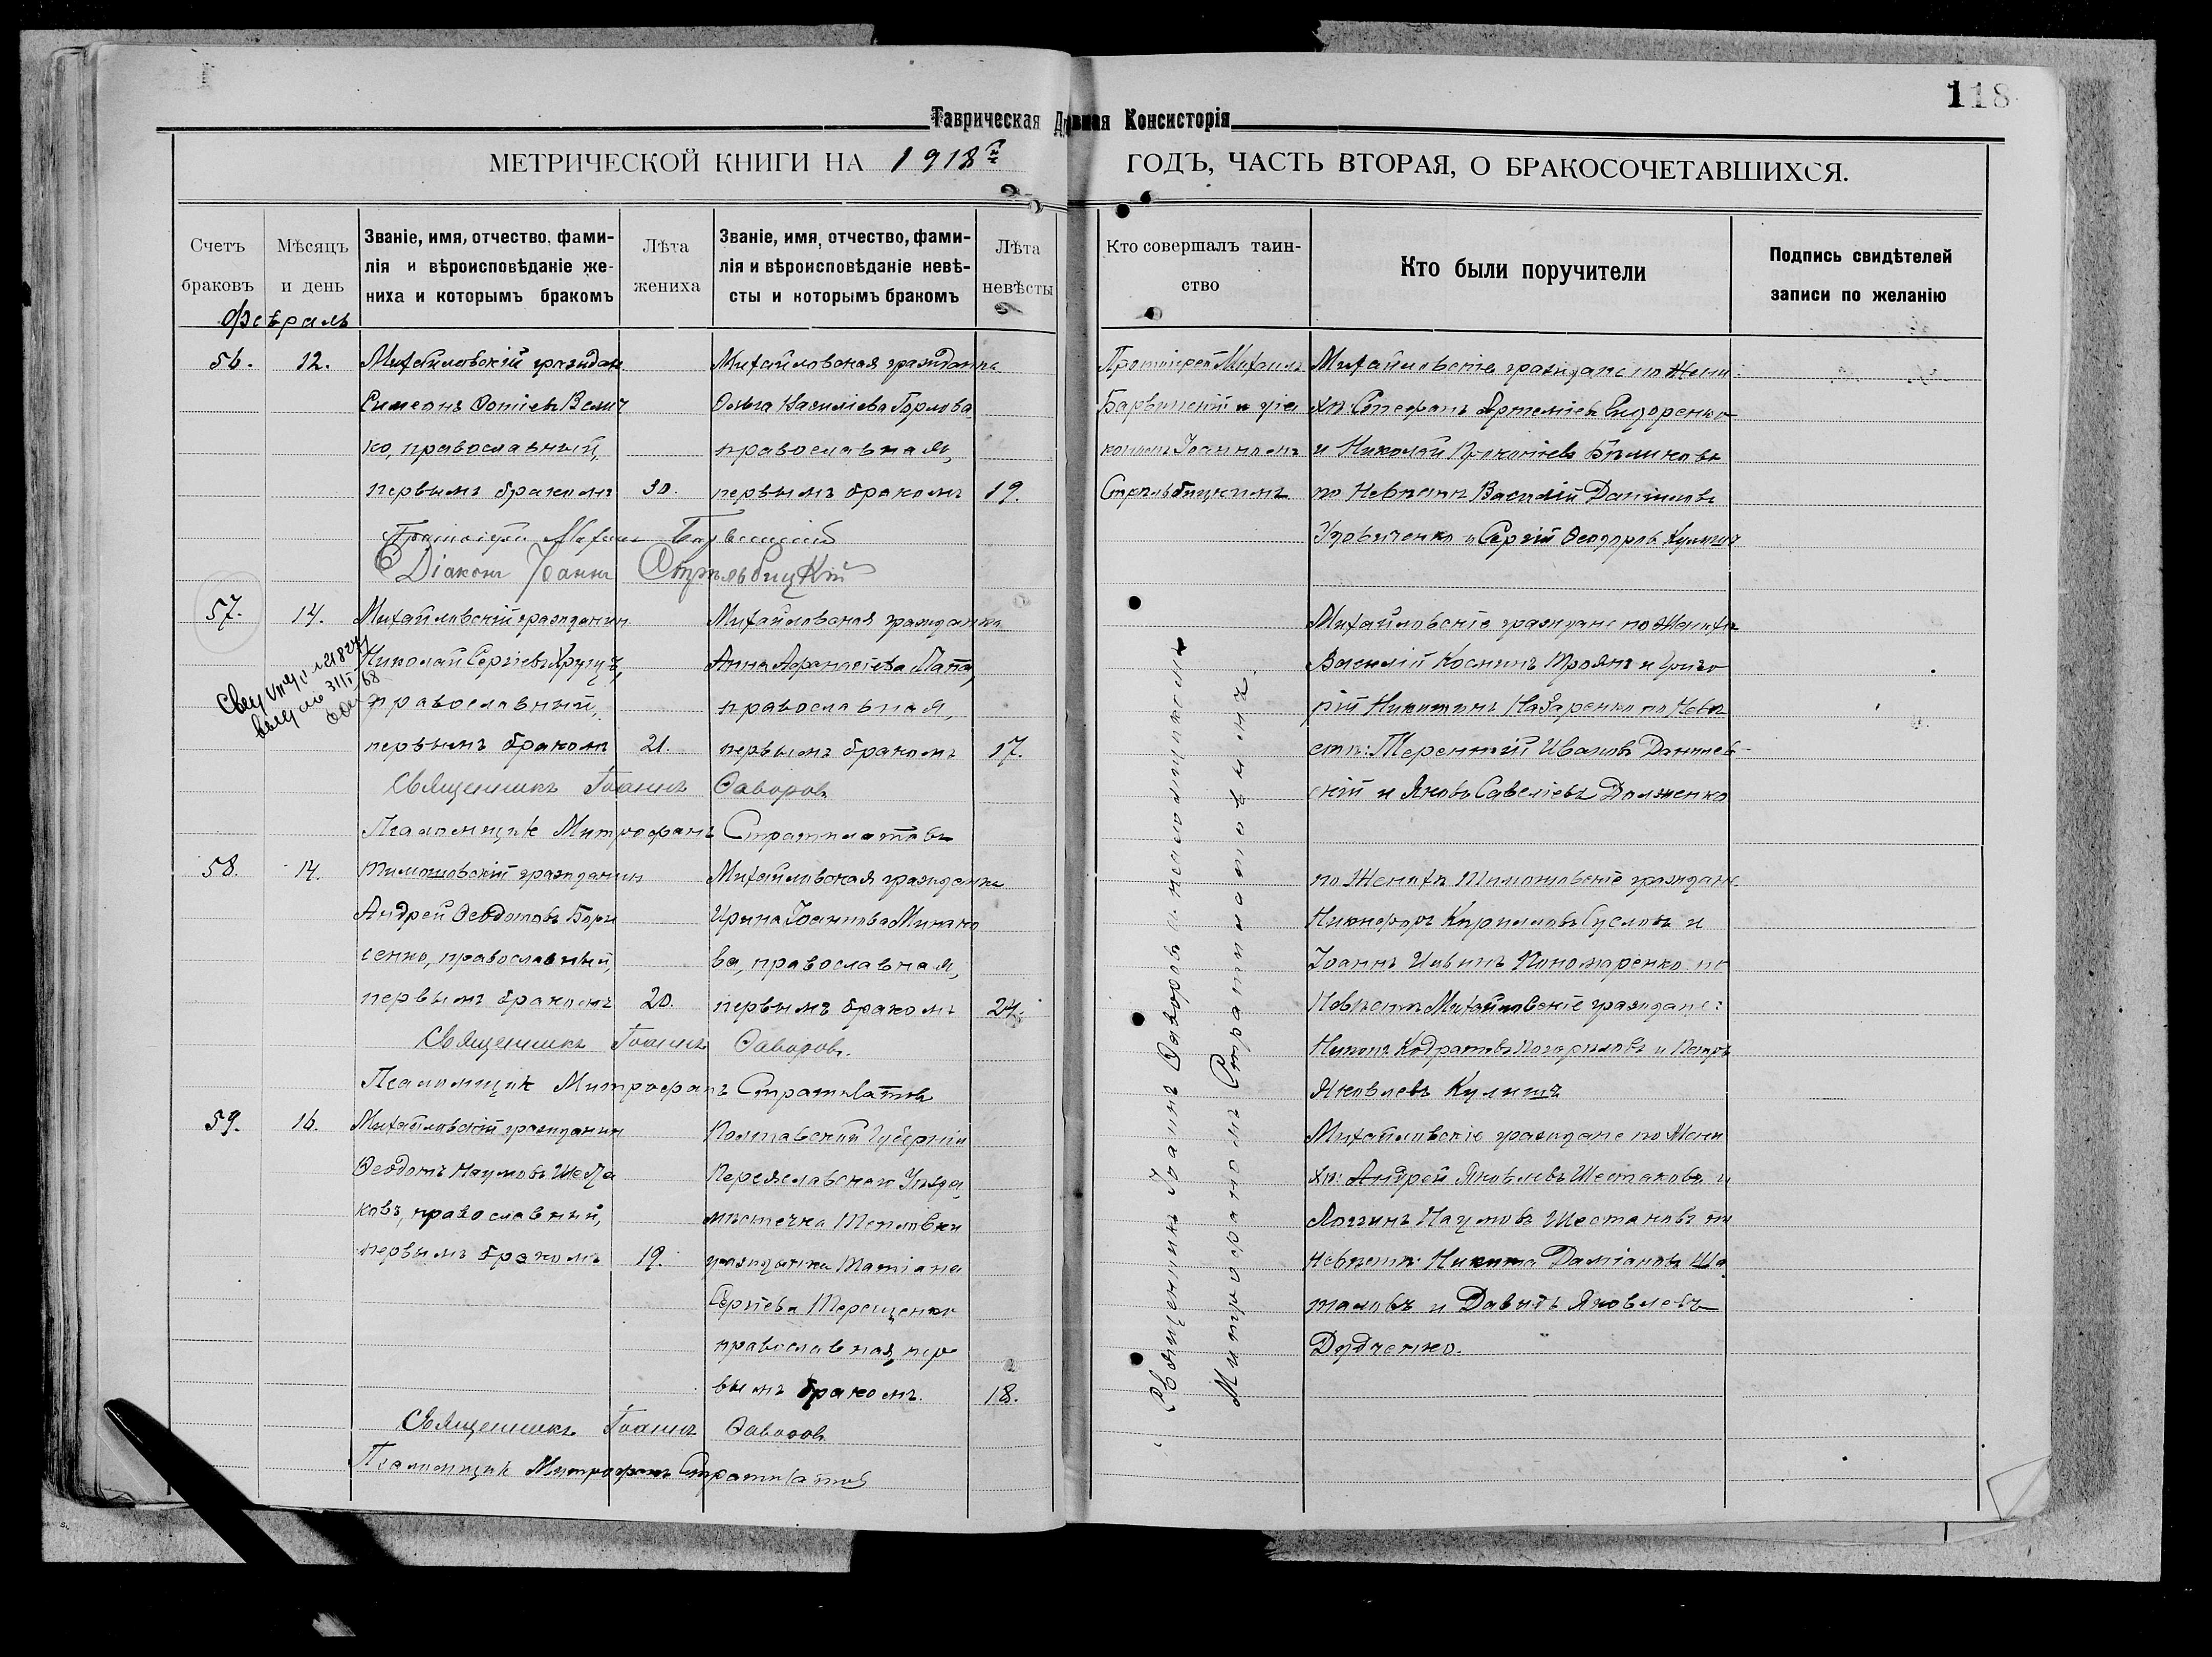 118
Таврическая Духовная Консисторія
МЕТРИЧЕСКОЙ КНИГИ НА 1918й ГОДЪ, ЧАСТЬ ВТОРАЯ, О БРАКОСОЧЕТАВШИХСЯ.
Счетъ браковъ
Мѣсяцъ и день
Званіе, имя, отчество, фами-
лія и вѣроисповѣданіе же-
ниха и которымъ бракомъ
Лѣта жениха
Званіе, имя, отчество, фами-
лія и вѣроисповѣданіе невѣ-
сты и которымъ бракомъ
Лѣта невѣсты
Кто совершалъ таин-
ство
Кто были поручители
Подпись свидѣтелей
записи по желанію
Февраль
56.
12.
Михайловскій граждан
Симеонъ Фотіев Велич
ко, православный,
первымъ бракомъ
30.
Михайловская гражданка
Ольга Василіева Горлова
православная,
первымъ бракомъ
19.
Протоіерей Михаилъ
Барвинскій и діа
кономъ Іоанномъ
Стрѣльбицкимъ
Михайловскіе граждане по Жени-
хѣ: Стефанъ Артеміевъ Сидоренко
и Николай Прокопіевъ Бѣликовъ
по Невѣстѣ Василій Даніиловъ
Удовиченко и Сергій Феодоровъ Кулишъ
Протоіерей Михаилъ Барвинскій
Діаконъ Іоаннъ Стрѣльбицкій
57.
14.
Михайловскій гражданин
Николай Сергіевъ Хрущъ,
православный,
первымъ бракомъ
21.
Михайловская гражданка
Анна Афанасіева Папа,
православная,
первымъ бракомъ
17.
Михайловскіе граждане по Женихѣ
Василій Косминъ Троянъ и Григо
рій Никитинъ Назаренко по Невѣ
стѣ: Терентій Ивановъ Данилев-
скій и Яковъ Савеліевъ Долженко
Священникъ Іоаннъ Фаворовъ
Псаломщикъ Митрофанъ Стратилатовъ
58.
14.
Тимошовскій гражданин
Андрей Феодотовъ Бори
сенко, православный,
первымъ бракомъ
20.
Михайловская гражданка
Ирина Іоаннова Минако
ва, православная,
первымъ бракомъ
24.
по Женихѣ Тимошовскіе граждане
Никифоръ Кирилловъ Сусловъ и
Іоаннъ Ильинъ Пономаренко по
Невѣстѣ Михайловскіе граждане:
Никонъ Кодратовъ Погориловъ и Петръ
Яковлевъ Кулишъ
Священникъ Іоаннъ Фаворовъ.
Псаломщикъ Митрофанъ Стратилатовъ
59.
16.
Михайловскій гражданин
Феодотъ Наумовъ Шеста
ковъ, православный,
первымъ бракомъ
19.
Полтавской Губерніи
Переяславскаго Уѣзда,
мѣстечка Тепловки
гражданка Татіана
Сергіева Терещенко
православная, пер
вымъ бракомъ.
18.
Михайловскіе граждане по Жени
хѣ: Андрей Яковлевъ Шестаковъ и
Логгинъ Наумовъ Шестаковъ по
Невѣстѣ: Никита Даміановъ Ша
таловъ и Давидъ Яковлевъ
Дудченко.
Священникъ Іоаннъ Фаворовъ
Псаломщикъ Митрофанъ Стратилатовъ
Священникъ Іоаннъ Фаворовъ съ псаломщикомъ
Митрофаномъ Стратилатовымъ.